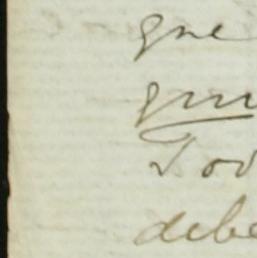 que
Tod
debe